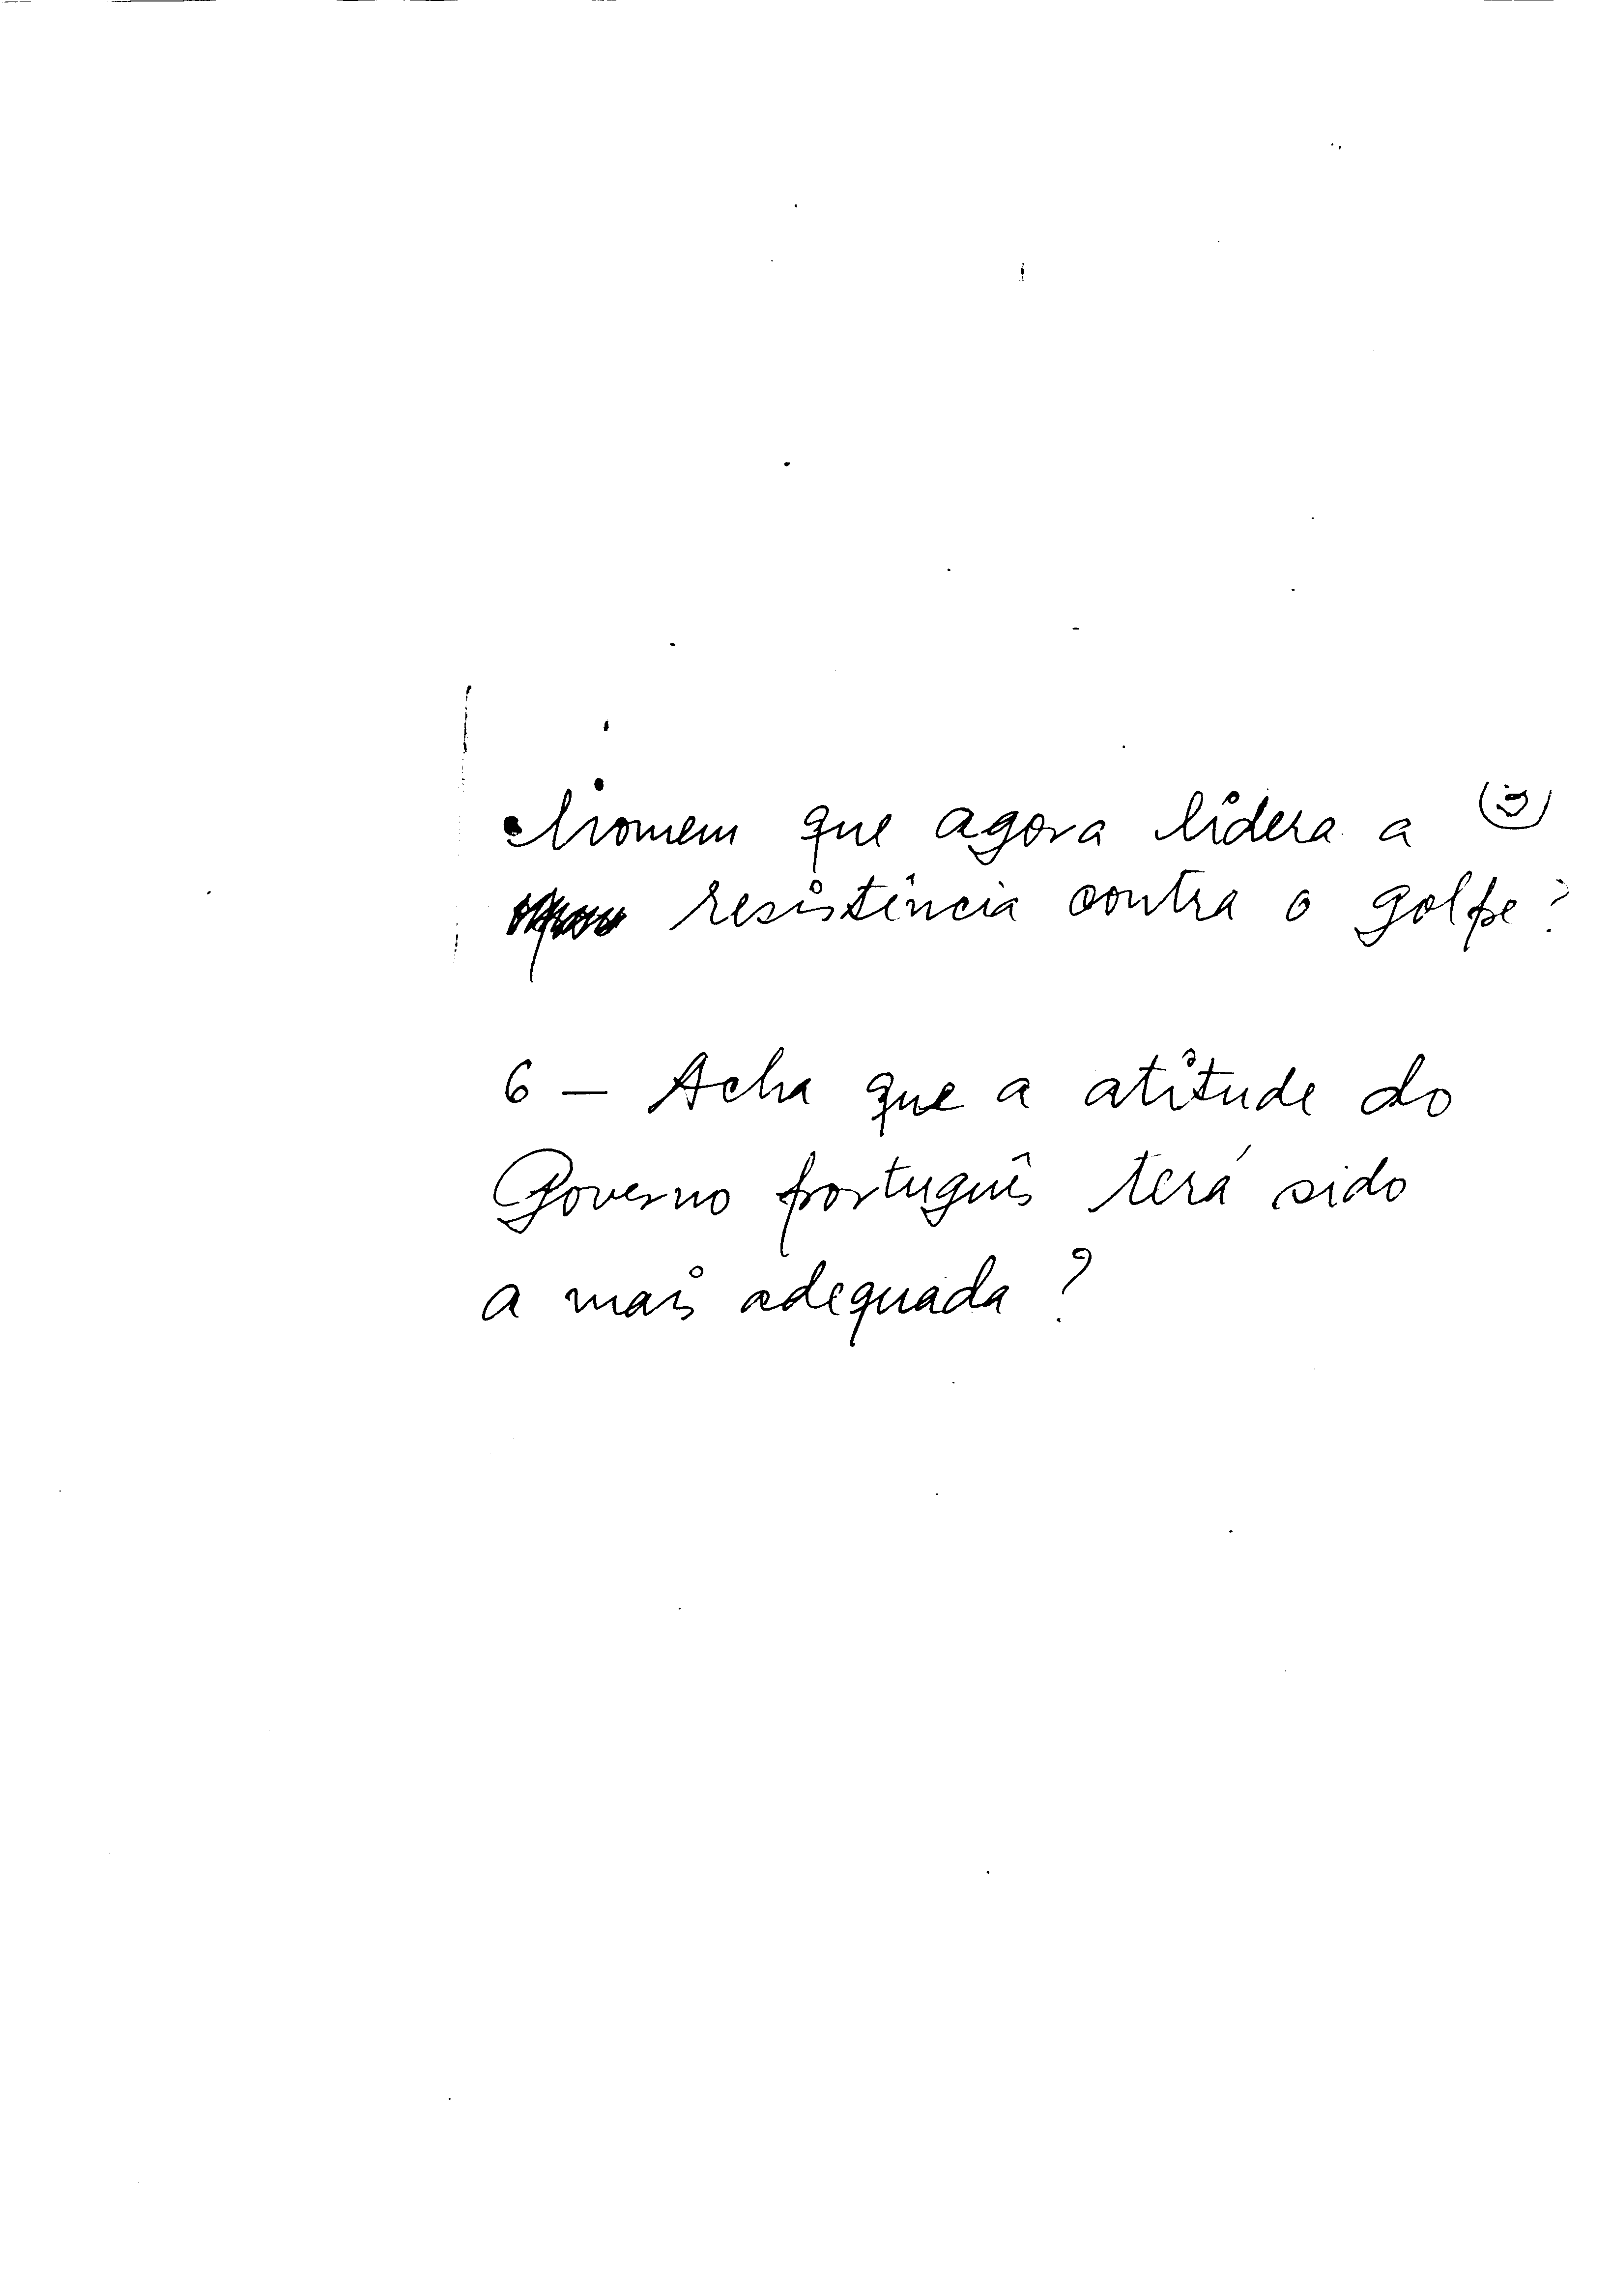 homem que agora lidera a
resistência contra o golpe?
6 — Acha que a atitude do
Governo português terá sido
a mais adequada?